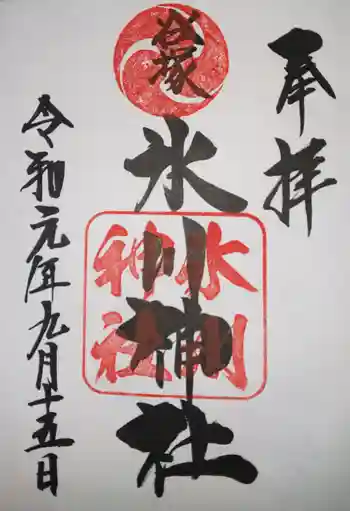 奉拝
谷塚
氷川神社
氷川神社
令和元年九月十五日